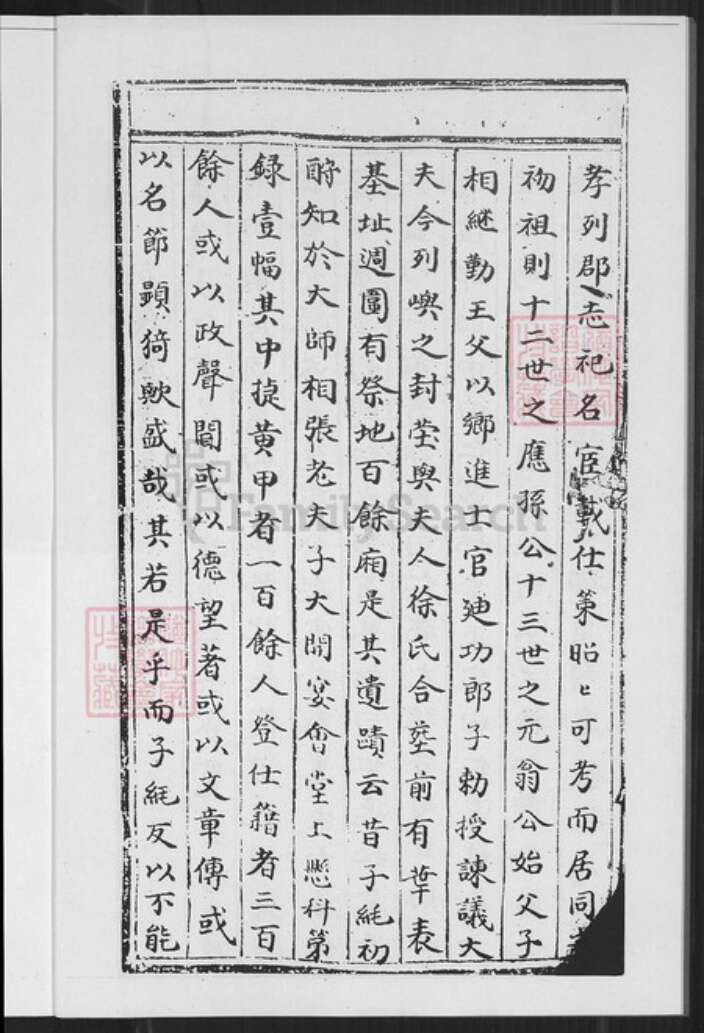 孝列郡志祀名宦載仕策昭〻可考而居同
初祖則十二世之應孫公十三世之元翁公始父子
相継勤王父以鄉進士官廸功郎子勅授諌議大
夫今列嶼之封塋與夫人徐氏合塟前有華表
基址週圍有祭地百餘廂是其遺蹟云昔子純初
酧知於大師相張老夫子大開宴會堂上懸科第
録壹幅其中㨗黄甲者一百餘人登仕籍者三百
餘人或以政聲聞或以德望著或以文章傳或
以名節顕猗歟盛哉其若是乎而子純反以不能
FamilySearch